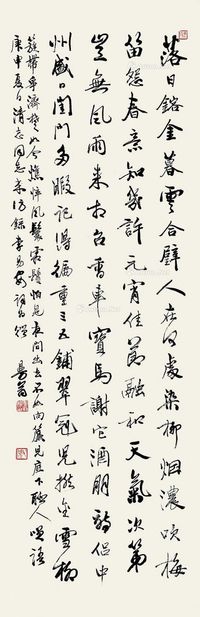 落日鎔金暮雲合璧人在何處染柳烟濃吹梅
笛怨春意知幾許元宵佳節融和天氣次第
豈無風雨来相召香車寶馬謝它酒朋詩侣中
州盛日閨門多暇記得偏重三五鋪翠冠兒撚金雪柳
簇帶爭濟楚如今憔悴風鬟霜鬢怕見夜間出去不如向簾兒底下聽人咲語
庚申夏日清志同志来訪錄李易安詞